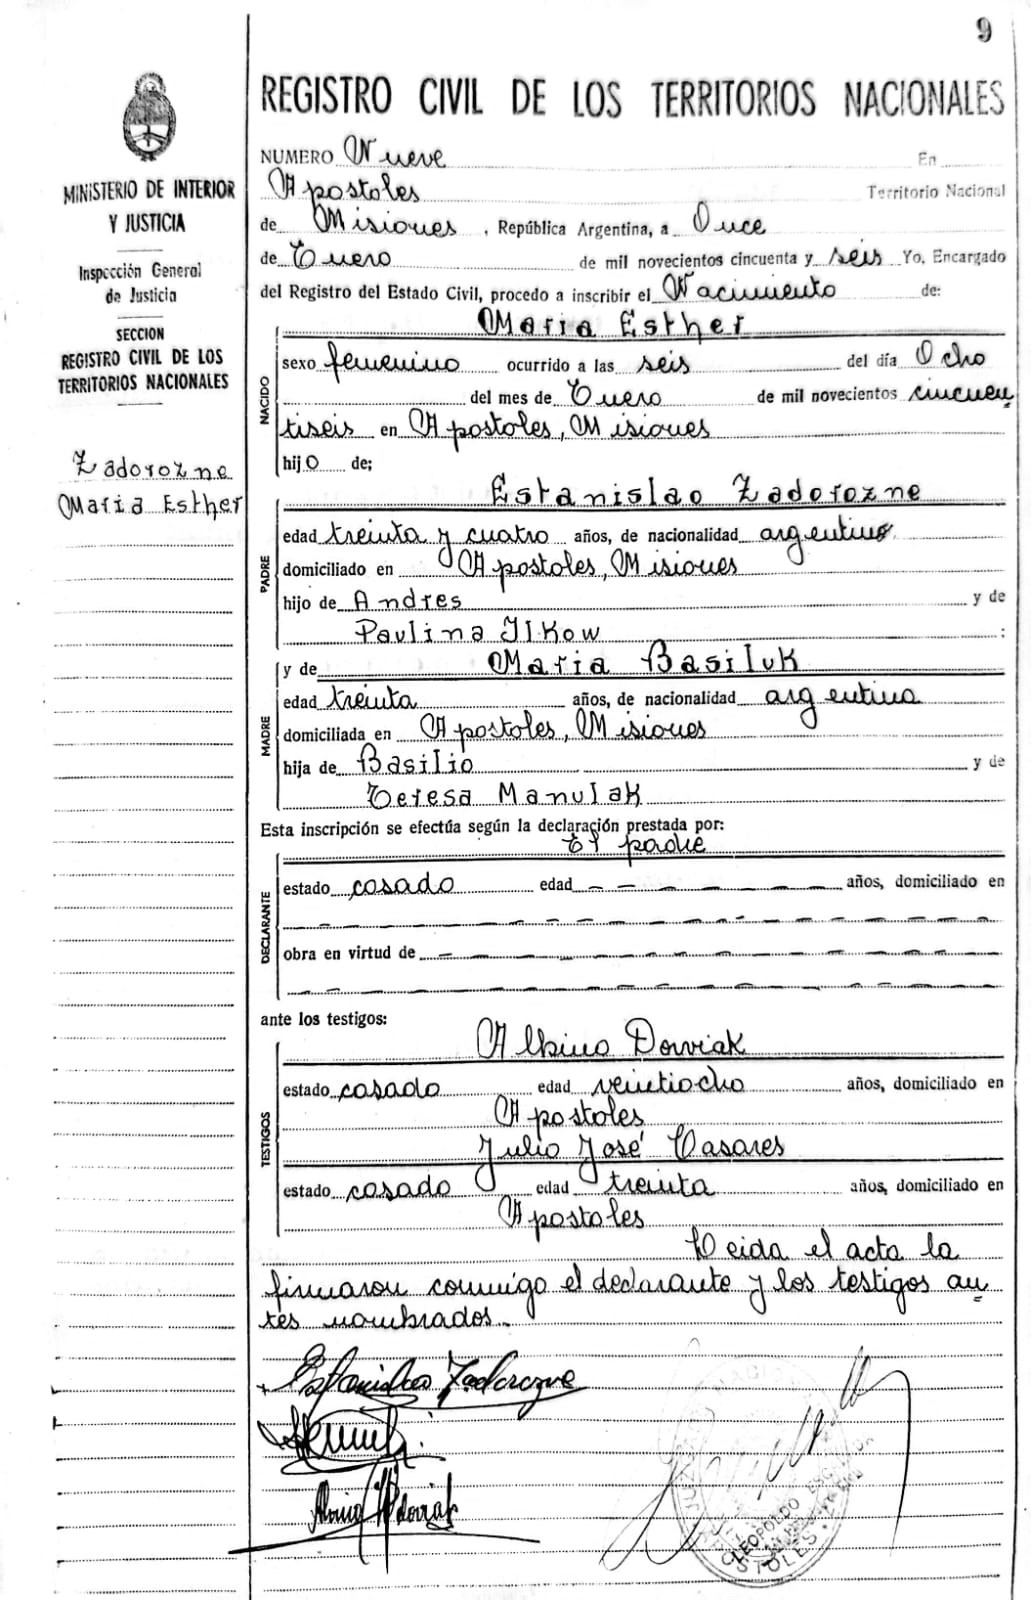 9
REGISTRO CIVIL DE LOS TERRITORIOS NACIONALES
MINISTERIO DE INTERIOR
Y JUSTICIA
Inspección General
de Justicia
SECCION
REGISTRO CIVIL DE LOS
TERRITORIOS NACIONALES
Zadorozne
Maria Esther
NUMERO Nueve En
Apostoles Territorio Nacional
de Misiones, República Argentina, a Once
de Enero de mil novecientos cincuenta y seis Yo, Encargado
del Registro del Estado Civil, procedo a inscribir el Nacimiento de:
NACIDO
Maria Esther
sexo femenino ocurrido a las seis del día Ocho
del mes de Enero de mil novecientos cincuen
tiseis en Apostoles, Misiones
hijo de;
PADRE
Estanislao Zadorozne
edad treinta y cuatro años, de nacionalidad argentino
domiciliado en Apostoles, Misiones
hijo de Andres y de
Paulina Ilkow ;
MADRE
y de Maria Basiluk
edad treinta años, de nacionalidad argentina
domiciliada en Apostoles, Misiones
hija de Basilio y de
Teresa Manulak
Esta inscripción se efectúa según la declaración prestada por:
DECLARANTE
El padre
estado casado edad — — — — — — años, domiciliado en
obra en virtud de
ante los testigos:
TESTIGOS
Albino Dorviak
estado casado edad veintiocho años, domiciliado en
Apostoles
Julio José Casares
estado casado edad treinta años, domiciliado en
Apostoles
Leida el acta la
firmaron conmigo el declarante y los testigos an
tes nombrados.
Estanislao Zadorozne
LEOPOLDO